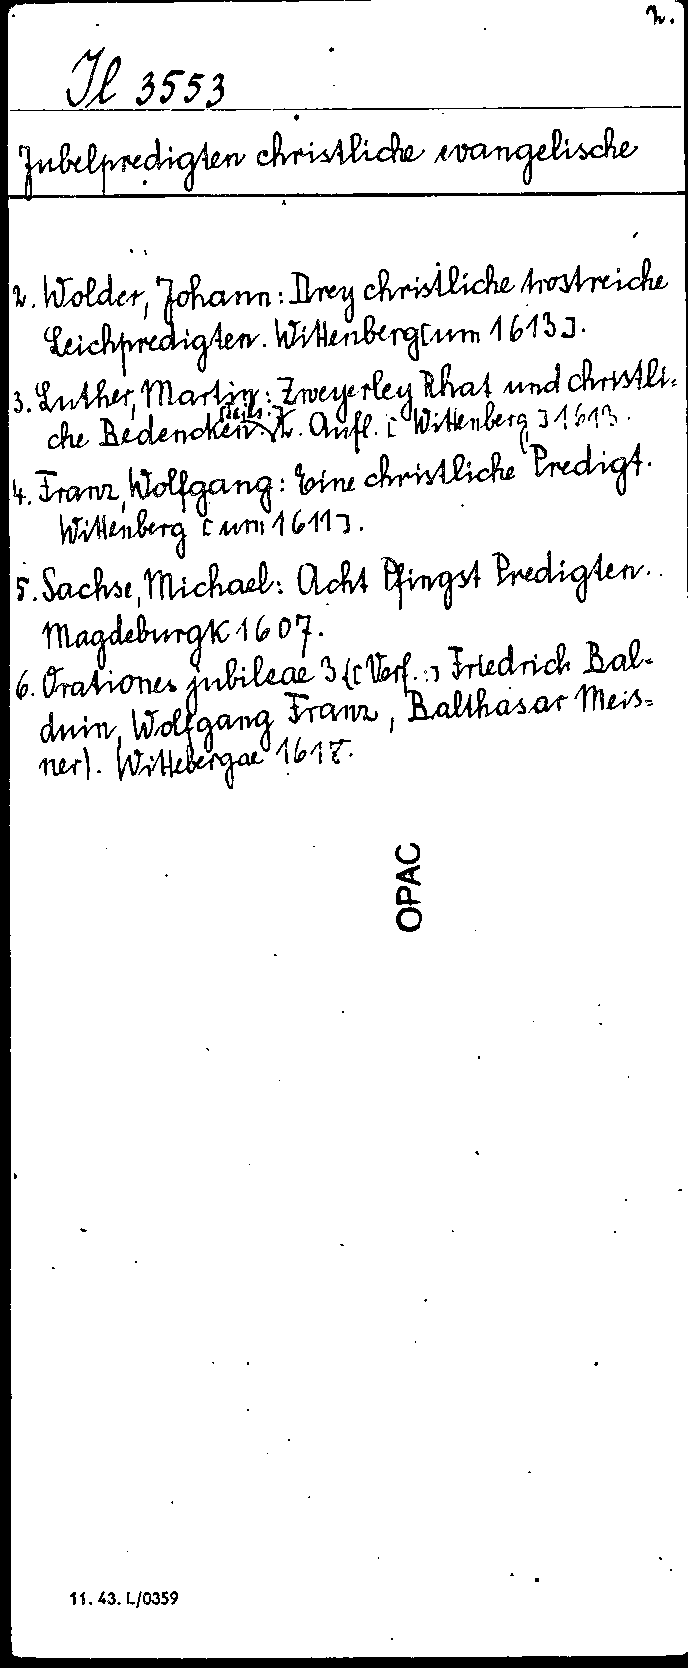 2.
Il 3553
Jubelpredigten christliche evangelische
2. Wolder, Johann: Drey christliche trostreiche
Leichpredigten. Wittenberg [um 1613].
3. Luther, Martin: Zweyerley Rhat und christli-
che Bedencken. 2. Aufl. [Wittenberg] 1613.
4. Franz, Wolfgang: Eine christliche Predigt.
Wittenberg [um 1611].
5. Sachse, Michael: Acht Pfingst Predigten.
Magdeburgk 1607.
6. Orationes jubileae 3 ([Verf.:] Friedrich Bal-
duin, Wolfgang Franz, Balthasar Meis-
ner). Wittebergae 1617.
OPAC
11. 43. L/0359